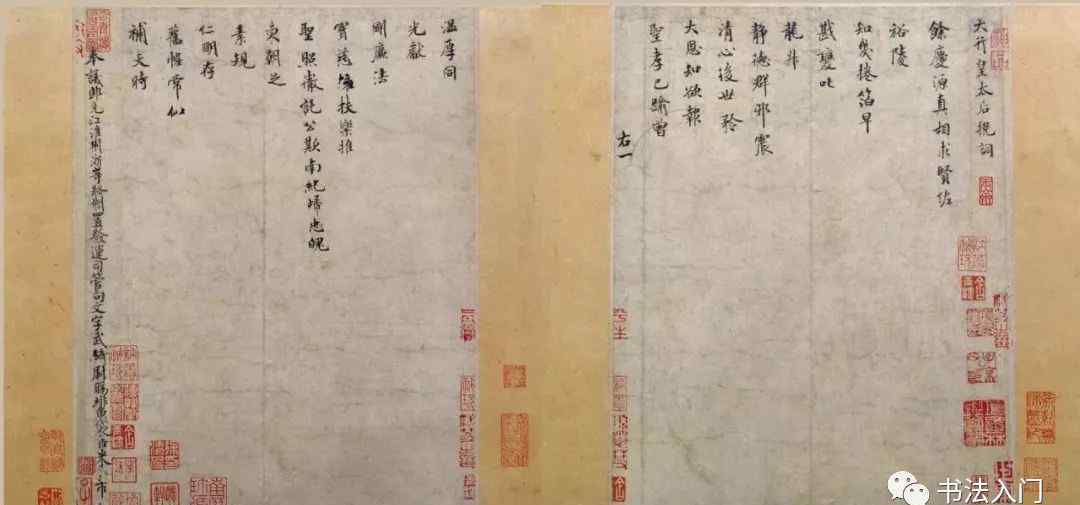 大行皇太后挽詞
餘慶源真相求賢佐
裕陵
知幾捲箔早
戡難叱
龍升
靜德群邪震
清心後世矜
大恩知欲報
聖孝已踰曾
右一
温厚同
光獻
剛廉法
寶慈擁扶樂推
聖照徹託公欺南紀歸忠魄
東朝足
素規
仁明存
舊幄常似
補天時
奉議郎充江淮荊浙等路制置發運司管勾文字武騎尉賜緋魚袋臣米芾
書法入門